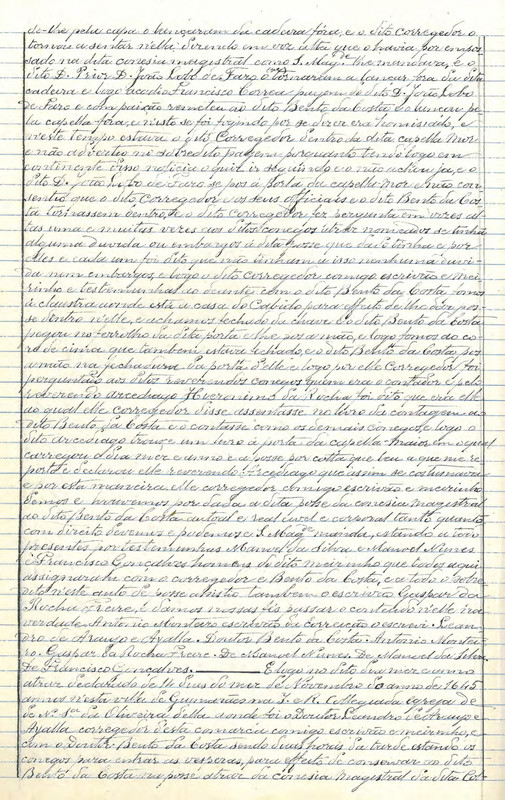 do-lhe pela capa o lançaram da cadeira fóra, e o dito corregedor o
tornou a sentar n'ella dizendo em voz alta que o havia por empos-
sado na dita conesia magistral como S. Mag.de lhe mandava, e o
dito D. Prior D. João Lobo de Faro o tornaram a lançar fóra da dita
cadeira e logo acudio Francisco Correa pagem do dito D. João Lobo
de Faro e com paixão remeteu ao dito Bento da Costa e o lançou pe-
la capella fóra, e n'isto se foi fugindo por se dizer era homisiado, e
n'este tempo estava o dito Corregedor dentro da dita capella mor
e não advertio no sobredito pagem porquanto tendo logo em
continente d'isso noticia o quiz ir seguindo e o não achou já, e o
dito D. João Lobo de Faro se pôs á porta da capella mor e não con-
sentio que o dito Corregedor e os seus officiaes e o dito Bento da Cos-
ta tornassem dentro, e o dito corregedor fez pergunta em vozes al-
tas uma e muitas vezes aos ditos conegos atraz nomeados se tinham
alguma duvida ou embargos á dita posse que dada tinha e por
elles e cada um foi dito que não tinham a isso nenhuma duvi-
da nem embargos, e logo o dito corregedor comigo escrivão e mei-
rinho e testemunhas ao deante com o dito Bento da Costa fomos
á claustra aonde está a casa do Cabido para effeito de lhe dar pos-
se dentro n'elle, e achamos fechado da chave e o dito Bento da Costa
pegou no ferrolho da dita porta e lhe pos a mão, e logo fomos ao co-
ro de cima que tambem estava fechado, e o dito Bento da Costa pos
a mão na fechadura da porta d'elle e logo por elle Corregedor foi
perguntado aos ditos reverendos conegos quem era o contador e pelo
reverendo arcediago Hieronimo da Rocha foi dito que era elle
ao qual elle corregedor disse assentasse no livro da contagem ao
dito Bento da Costa e o contasse como os demais conegos, e logo o
dito arcediago trouxe um livro á porta da capella maior em o qual
carregou o dia mez e anno e a posse por costa que leu a que me re-
porto e declarou elle reverendo Arcediago que assim se costumava
e por esta maneira elle corregedor comigo escrivão e meirinho
demos e houvemos por dada a dita posse da conesia magistral
ao dito Bento da Costa autoal e real civel e corporal tanto quanto
com direito devemos e podemos e S. Mag.de manda, estando a tudo
presentes por testemunhas Manoel da Silva e Manoel Nunes
e Francisco Gonçalves homens do dito meirinho que todos aqui
assignaram com o corregedor e Bento da Costa, e a todo o sobre-
dito n'este auto de posse assistio tambem o escrivão Gaspar da
Rocha Freire e damos nossas fés passar o contehudo n'elle na
verdade Antonio Montaro escrivão da correição o escrevi. Lean-
dro de Araujo e Ayalla. Doutor Bento da Costa. Antonio Montei-
ro. Gaspar da Rocha Freire. De Manoel Nunes. De Manoel da Silva.
De Francisco Gonçalves. E logo no dito dia mez e anno
atraz declarado de 14 dias do mez de Novembro do anno de 1645
annos n'esta villa de Guimarães na I. e R. Collegiada igreja de
de N.ª S.ª da Oliveira d'ella aonde foi o Doutor Leandro de Araujo e
Ayalla corregedor d'esta comarca comigo escrivão e meirinho, e
com o Doutor Bento da Costa sendo duas horas da tarde estando os
conegos para entrar as vesperas, para effeito de conservar ao dito
Bento da Costa na posse atraz da conesia magistral da dita Col-